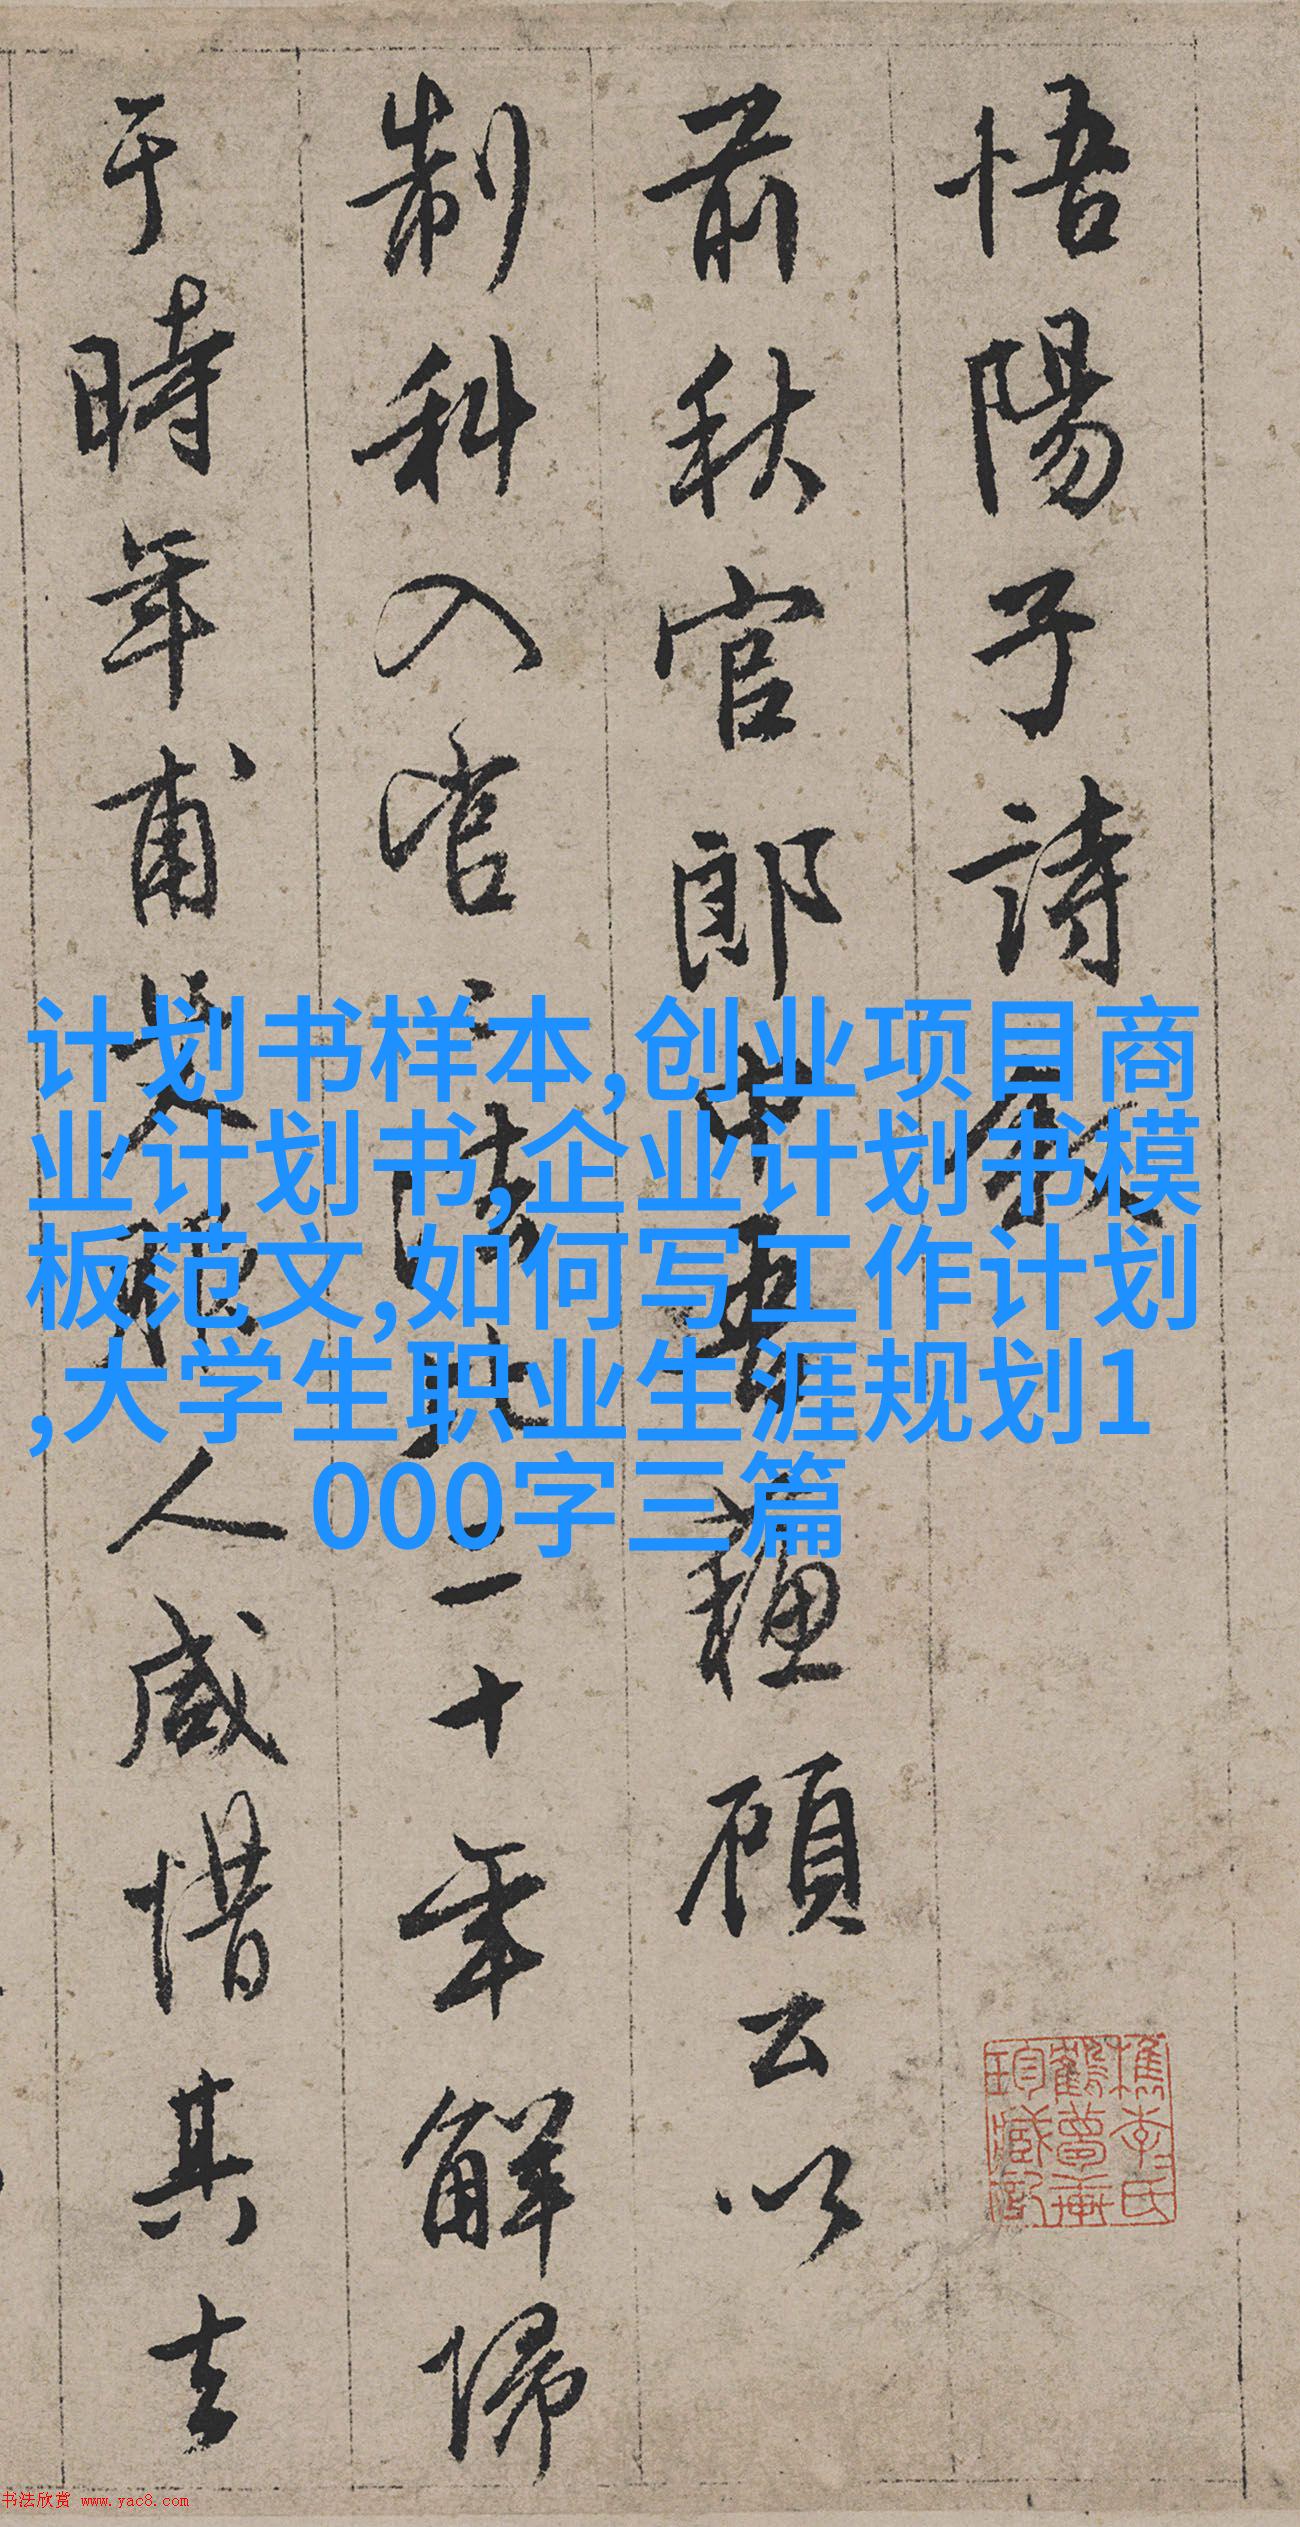 悟陽子詩敘
前秋官郎中吾蘓顧公以
制科入官
二十年解歸
于時年甫是服人咸惜其去
计划书样本,创业项目商
业计划书,企业计划书模
板范文,如何写工作计划
,大学生职业生涯规划1
000字三篇
书法欣赏 www.yac8.com